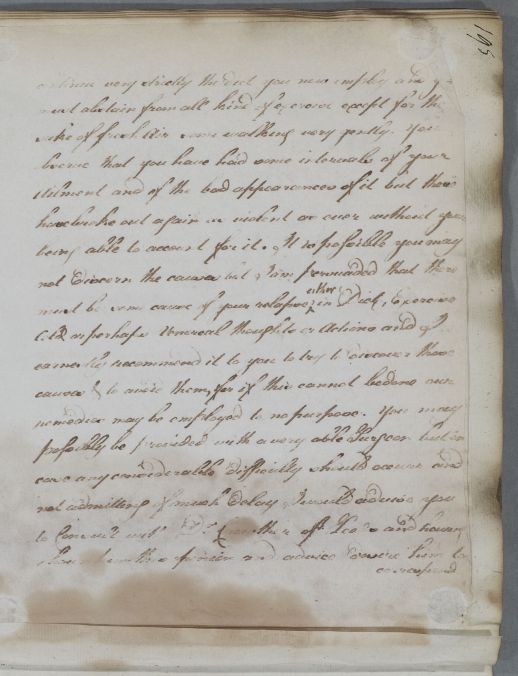 195
continue very strictly the diet you now employ and you
must abstain from all kind of exercise except for the
sake of fresh Air some walking very gently. You
observe that you have had some intervals of your
Ailment and of the bad appearances of it but these
have broke out again as violent as ever without your
being able to account for it. It is possible you may
not discern the causes but I am persuaded that there
must be some cause of your relapses either in Diet, exercise
Cold or perhaps Venereal thoughts or Actions and I
earnestly recommend it to you to try to discover these
causes & to avoid them, for if this cannot be done our
remedies may be employed to no purpose. You may
possibly be provided with a very able Surgeon but in
case any considerable difficulty should occur and
not admitting of much Delay I would advise you
to consult with Dr. of and having
shown him this and advice desire him to
correspond